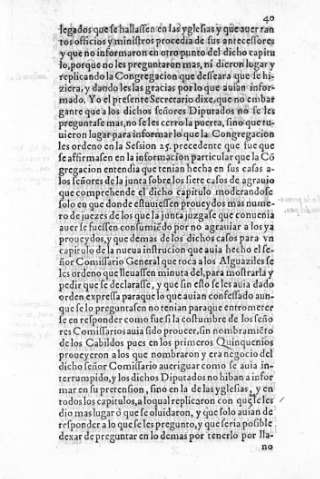 40
legados que se hallassen en las yglesias y que auer tan
tos officios y ministros procedia de sus antecessores
y que no informaron en otro punto del dicho capitu
lo, porque no les preguntaron mas, ni dieron lugar y
replicando la Congregacion que desseara que se hi-
ziera, y dando les las gracias por lo que auian infor-
mado. Yo el presente Secretario dixe, que no embar
gante que a los dichos señores Diputados no se les
preguntasse mas, no se les cerro la puerta, sino que tu-
uieron lugar para informar lo que la Congregacion
les ordeno en la Session 25. precedente que fue que
se affirmassen en la informacion particular que la Cõ
gregacion entendia que tenian hecha en sus casas a-
los señores de la junta sobre los siete casos de agrauio
que comprehende el dicho capitulo moderandose
solo en que donde estuuiessen proueydos mas nume-
ro de juezes de los que la junta juzgasse que conuenia
auer se fuessen consumiẽdo por no agrauiar a los ya
proueydos, y que demas de los dichos casos para vn
capitulo de la nueua instrucion que auia hecho el se-
ñor Comissario General que toca a los Alguaziles se
les ordeno que lleuassen minuta del, para mostrarla y
pedir que se declarasse, y que sin esto se les auia dado
orden expressa para que lo que auian confessado aun-
que se lo preguntassen no tenian para que entrometer
se en responder como fue si la costumbre de los seño
res Comissarios auia sido proueer, sin nombramiẽto
de los Cabildos pues en los primeros Quinquenios
proueyeron a los que nombraron y era negocio del
dicho señor Comissario aueriguar como se auia in-
terrumpido, y los dichos Diputados no hiban a infor
mar en su pretension, sino en la de las yglesias, y en
todos los capitulos, a lo qual replicaron con que se les
dio mas lugar ó que se oluidaron, y que solo auian de
responder a lo que se les pregunto, y que seria posible
dexar de preguntar en lo demas por tenerlo por lla-
no